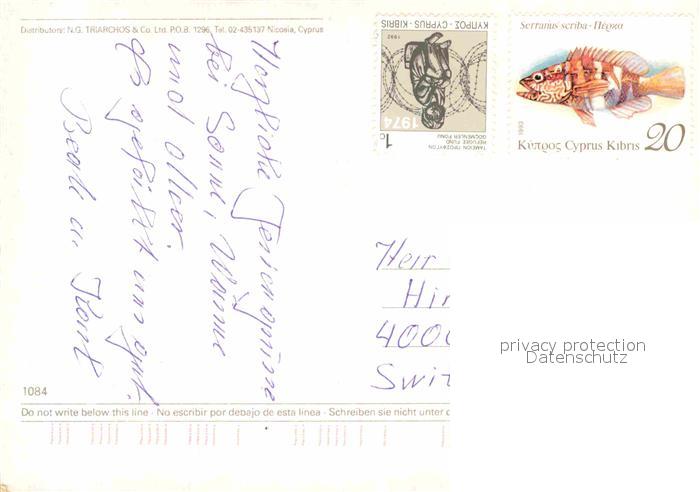 Distributors: N.G. TRIARCHOS & Co. Ltd. P.O.B. 1296, Tel. 02-435137 Nicosia, Cyprus
Herzliche Feriengrüsse
bei Sonne, Wärme
und Meer.
Es gefällt uns gut.
Beat u.
ΚΥΠΡΟΣ-CYPRUS-KIBRIS
1992
1974
1c
ΤΑΜΕΙΟΝ ΠΡΟΣΦΥΓΩΝ
REFUGEE FUND
GÖÇMENLER FONU
Serranus scriba - Πέρκα
1993
Κύπρος Cyprus Kibris 20
Herr
Hir
4000
Swit
privacy protection
Datenschutz
1084
Do not write below this line - No escribir por debajo de esta linea - Schreiben sie nicht unter d